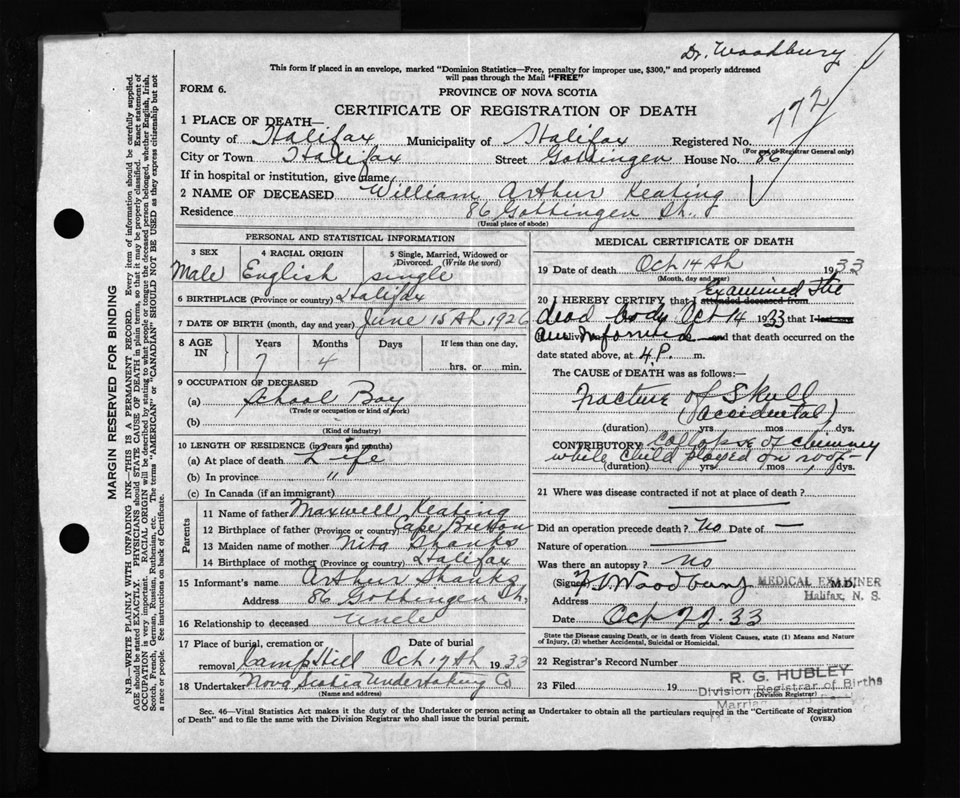 Dr. Woodbury
This form if placed in an envelope, marked "Dominion Statistics—Free, penalty for improper use, $300," and properly addressed
will pass through the Mail "FREE"
FORM 6.
PROVINCE OF NOVA SCOTIA
CERTIFICATE OF REGISTRATION OF DEATH
772
1 PLACE OF DEATH—
County of Halifax Municipality of Halifax Registered No.
(For use of Registrar General only)
City or Town Halifax Street Gottingen House No. 86
If in hospital or institution, give name
2 NAME OF DECEASED William Arthur Keating
Residence 86 Gottingen St.
(Usual place of abode)
PERSONAL AND STATISTICAL INFORMATION
3 SEX 4 RACIAL ORIGIN 5 Single, Married, Widowed or Divorced. (Write the word)
Male English single
6 BIRTHPLACE (Province or country) Halifax
7 DATE OF BIRTH (month, day and year) June 15th 1926
8 AGE IN Years Months Days If less than one day,
7 4 hrs. or min.
9 OCCUPATION OF DECEASED
(a) School Boy
(Trade or occupation or kind of work)
(b)
(Kind of industry)
10 LENGTH OF RESIDENCE (in years and months)
(a) At place of death Life
(b) In province "
(c) In Canada (if an immigrant)
Parents
11 Name of father Maxwell Keating
12 Birthplace of father (Province or country) Cape Breton
13 Maiden name of mother Nita Shanks
14 Birthplace of mother (Province or country) Halifax
15 Informant's name Arthur Shanks
Address 86 Gottingen St.
16 Relationship to deceased Uncle
17 Place of burial, cremation or removal Date of burial
Camp Hill Oct 17th 1933
18 Undertaker Nova Scotia Undertaking Co
(Name and address)
MEDICAL CERTIFICATE OF DEATH
19 Date of death Oct 14th 1933
(Month, day and year)
20 I HEREBY CERTIFY that I attended deceased from Examined the
dead body Oct 14 1933 that I last saw
alive and that death occurred on the
date stated above, at 4.P. m.
The CAUSE of DEATH was as follows:—
Fracture of Skull
(accidental)
(duration) yrs mos dys.
CONTRIBUTORY Collapse of chimney
while child played on roof
(duration) yrs mos dys.
21 Where was disease contracted if not at place of death?
Did an operation precede death? No Date of —
Nature of operation
Was there an autopsy? no
(Signed) Woodbury M.D.
MEDICAL EXAMINER
Halifax, N. S.
Address
Date Oct 22.33
State the Disease causing Death, or in death from Violent Causes, state (1) Means and Nature
of Injury, (2) whether Accidental, Suicidal or Homicidal.
22 Registrar's Record Number
23 Filed 19
R. G. HUBLEY
Division Registrar of Births
(Division Registrar)
Sec. 46—Vital Statistics Act makes it the duty of the Undertaker or person acting as Undertaker to obtain all the particulars required in the "Certificate of Registration
of Death" and to file the same with the Division Registrar who shall issue the burial permit.
(OVER)
MARGIN RESERVED FOR BINDING
N.B.—WRITE PLAINLY WITH UNFADING INK—THIS IS A PERMANENT RECORD. Every item of information should be carefully supplied.
AGE should be stated EXACTLY. PHYSICIANS should state CAUSE OF DEATH in plain terms, so that it may be properly classified. Exact statement of
OCCUPATION is very important. RACIAL ORIGIN will be described by stating to what people or tongue the deceased person belonged, whether English, Irish,
Scotch, French, German, Russian, Ruthenian, etc. The terms "AMERICAN" or "CANADIAN" SHOULD NOT BE USED as they express citizenship but not
a race or people. See instructions on back of Certificate.